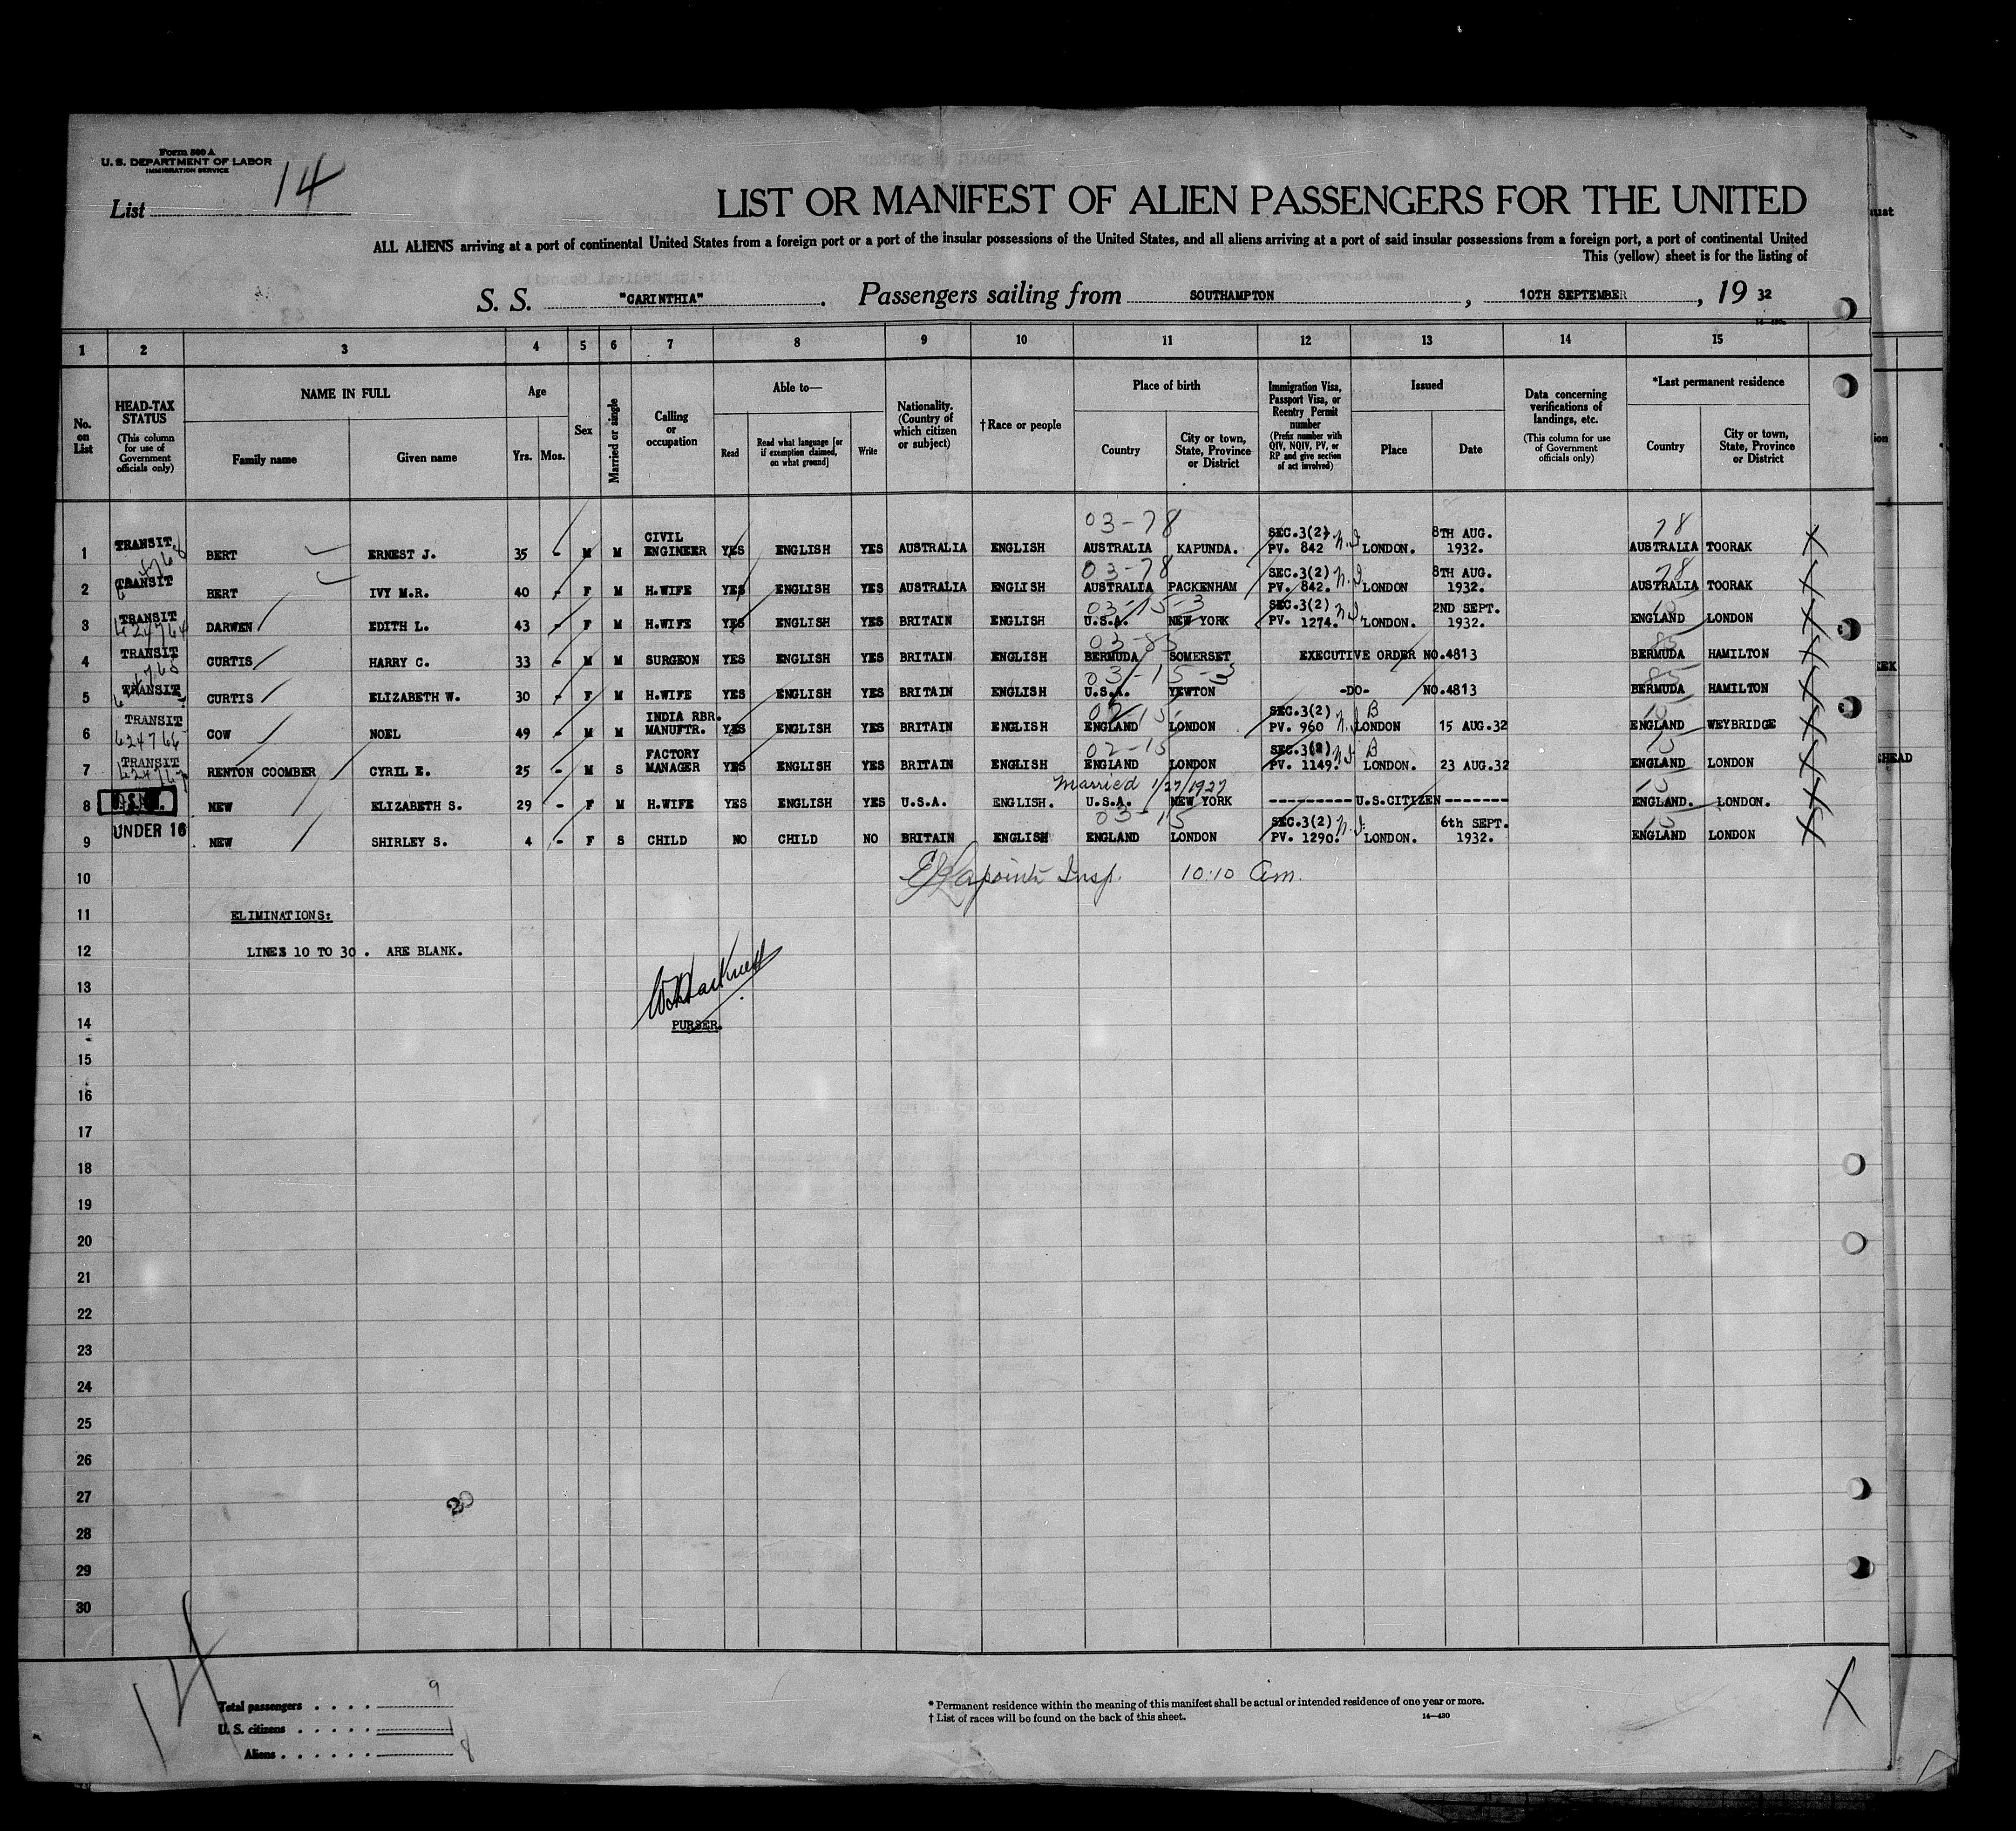 Form 500 A
U. S. DEPARTMENT OF LABOR
IMMIGRATION SERVICE
List 14
LIST OR MANIFEST OF ALIEN PASSENGERS FOR THE UNITED
ALL ALIENS arriving at a port of continental United States from a foreign port or a port of the insular possessions of the United States, and all aliens arriving at a port of said insular possessions from a foreign port, a port of continental United
This (yellow) sheet is for the listing of
S. S. "CARINTHIA" . Passengers sailing from SOUTHAMPTON , 10TH SEPTEMBER , 19 32
1 2 3 4 5 6 7 8 9 10 11 12 13 14 15
No. on List
HEAD-TAX STATUS (This column for use of Government officials only)
NAME IN FULL
Family name
Given name
Age
Yrs. Mos.
Sex
Married or single
Calling or occupation
Able to—
Read
Read what language [or if exemption claimed, on what ground]
Write
Nationality. (Country of which citizen or subject)
†Race or people
Place of birth
Country
City or town, State, Province or District
Immigration Visa, Passport Visa, or Reentry Permit number (Prefix number with QIV, NQIV, PV, or RP and give section of act involved)
Issued
Place
Date
Data concerning verifications of landings, etc. (This column for use of Government officials only)
*Last permanent residence
Country
City or town, State, Province or District
03-78 78
1 TRANSIT BERT ERNEST J. 35 - M M CIVIL ENGINEER YES ENGLISH YES AUSTRALIA ENGLISH AUSTRALIA KAPUNDA. SEC.3(2) PV. 842 LONDON. 8TH AUG. 1932. AUSTRALIA TOORAK X
03-78 78
2 TRANSIT BERT IVY M.R. 40 - F M H.WIFE YES ENGLISH YES AUSTRALIA ENGLISH AUSTRALIA PACKENHAM SEC.3(2) PV. 842. LONDON 8TH AUG. 1932. AUSTRALIA TOORAK X
03-15-3 15
3 TRANSIT 624764 DARWEN EDITH L. 43 - F M H.WIFE YES ENGLISH YES BRITAIN ENGLISH U.S.A. NEW YORK SEC.3(2) PV. 1274. LONDON. 2ND SEPT. 1932. ENGLAND LONDON X
03-85 85
4 TRANSIT CURTIS HARRY C. 33 - M M SURGEON YES ENGLISH YES BRITAIN ENGLISH BERMUDA SOMERSET EXECUTIVE ORDER NO.4813 BERMUDA HAMILTON X
03-15-3 85
5 TRANSIT CURTIS ELIZABETH W. 30 - F M H.WIFE YES ENGLISH YES BRITAIN ENGLISH U.S.A. YEWTON -DO- NO.4813 BERMUDA HAMILTON X
02-15 15
6 TRANSIT 624766 COW NOEL 49 - M M INDIA RBR. MANUFTR. YES ENGLISH YES BRITAIN ENGLISH ENGLAND LONDON SEC.3(2) PV. 960 B LONDON 15 AUG.32 ENGLAND WEYBRIDGE X
02-15 15
7 TRANSIT 624767 RENTON COOMBER CYRIL E. 25 - M S FACTORY MANAGER YES ENGLISH YES BRITAIN ENGLISH ENGLAND LONDON SEC.3(2) PV. 1149. B LONDON. 23 AUG.32 ENGLAND LONDON X
Married 1/27/1927 15
8 NEW ELIZABETH S. 29 - F M H.WIFE YES ENGLISH YES U.S.A. ENGLISH. U.S.A. NEW YORK ---------U.S.CITIZEN------- ENGLAND. LONDON. X
03-15 15
9 UNDER 16 NEW SHIRLEY S. 4 - F S CHILD NO CHILD NO BRITAIN ENGLISH ENGLAND LONDON SEC.3(2) PV. 1290. LONDON. 6th SEPT. 1932. ENGLAND LONDON X
10 Lapointe Insp. 10:10 am.
11 ELIMINATIONS:
12 LINES 10 TO 30. ARE BLANK.
13
14 PURSER.
15
16
17
18
19
20
21
22
23
24
25
26
27 20
28
29
30
14
Total passengers . . . . 9
U. S. citizens . . . . . 1
Aliens . . . . . . 8
* Permanent residence within the meaning of this manifest shall be actual or intended residence of one year or more.
† List of races will be found on the back of this sheet. 14—430
X